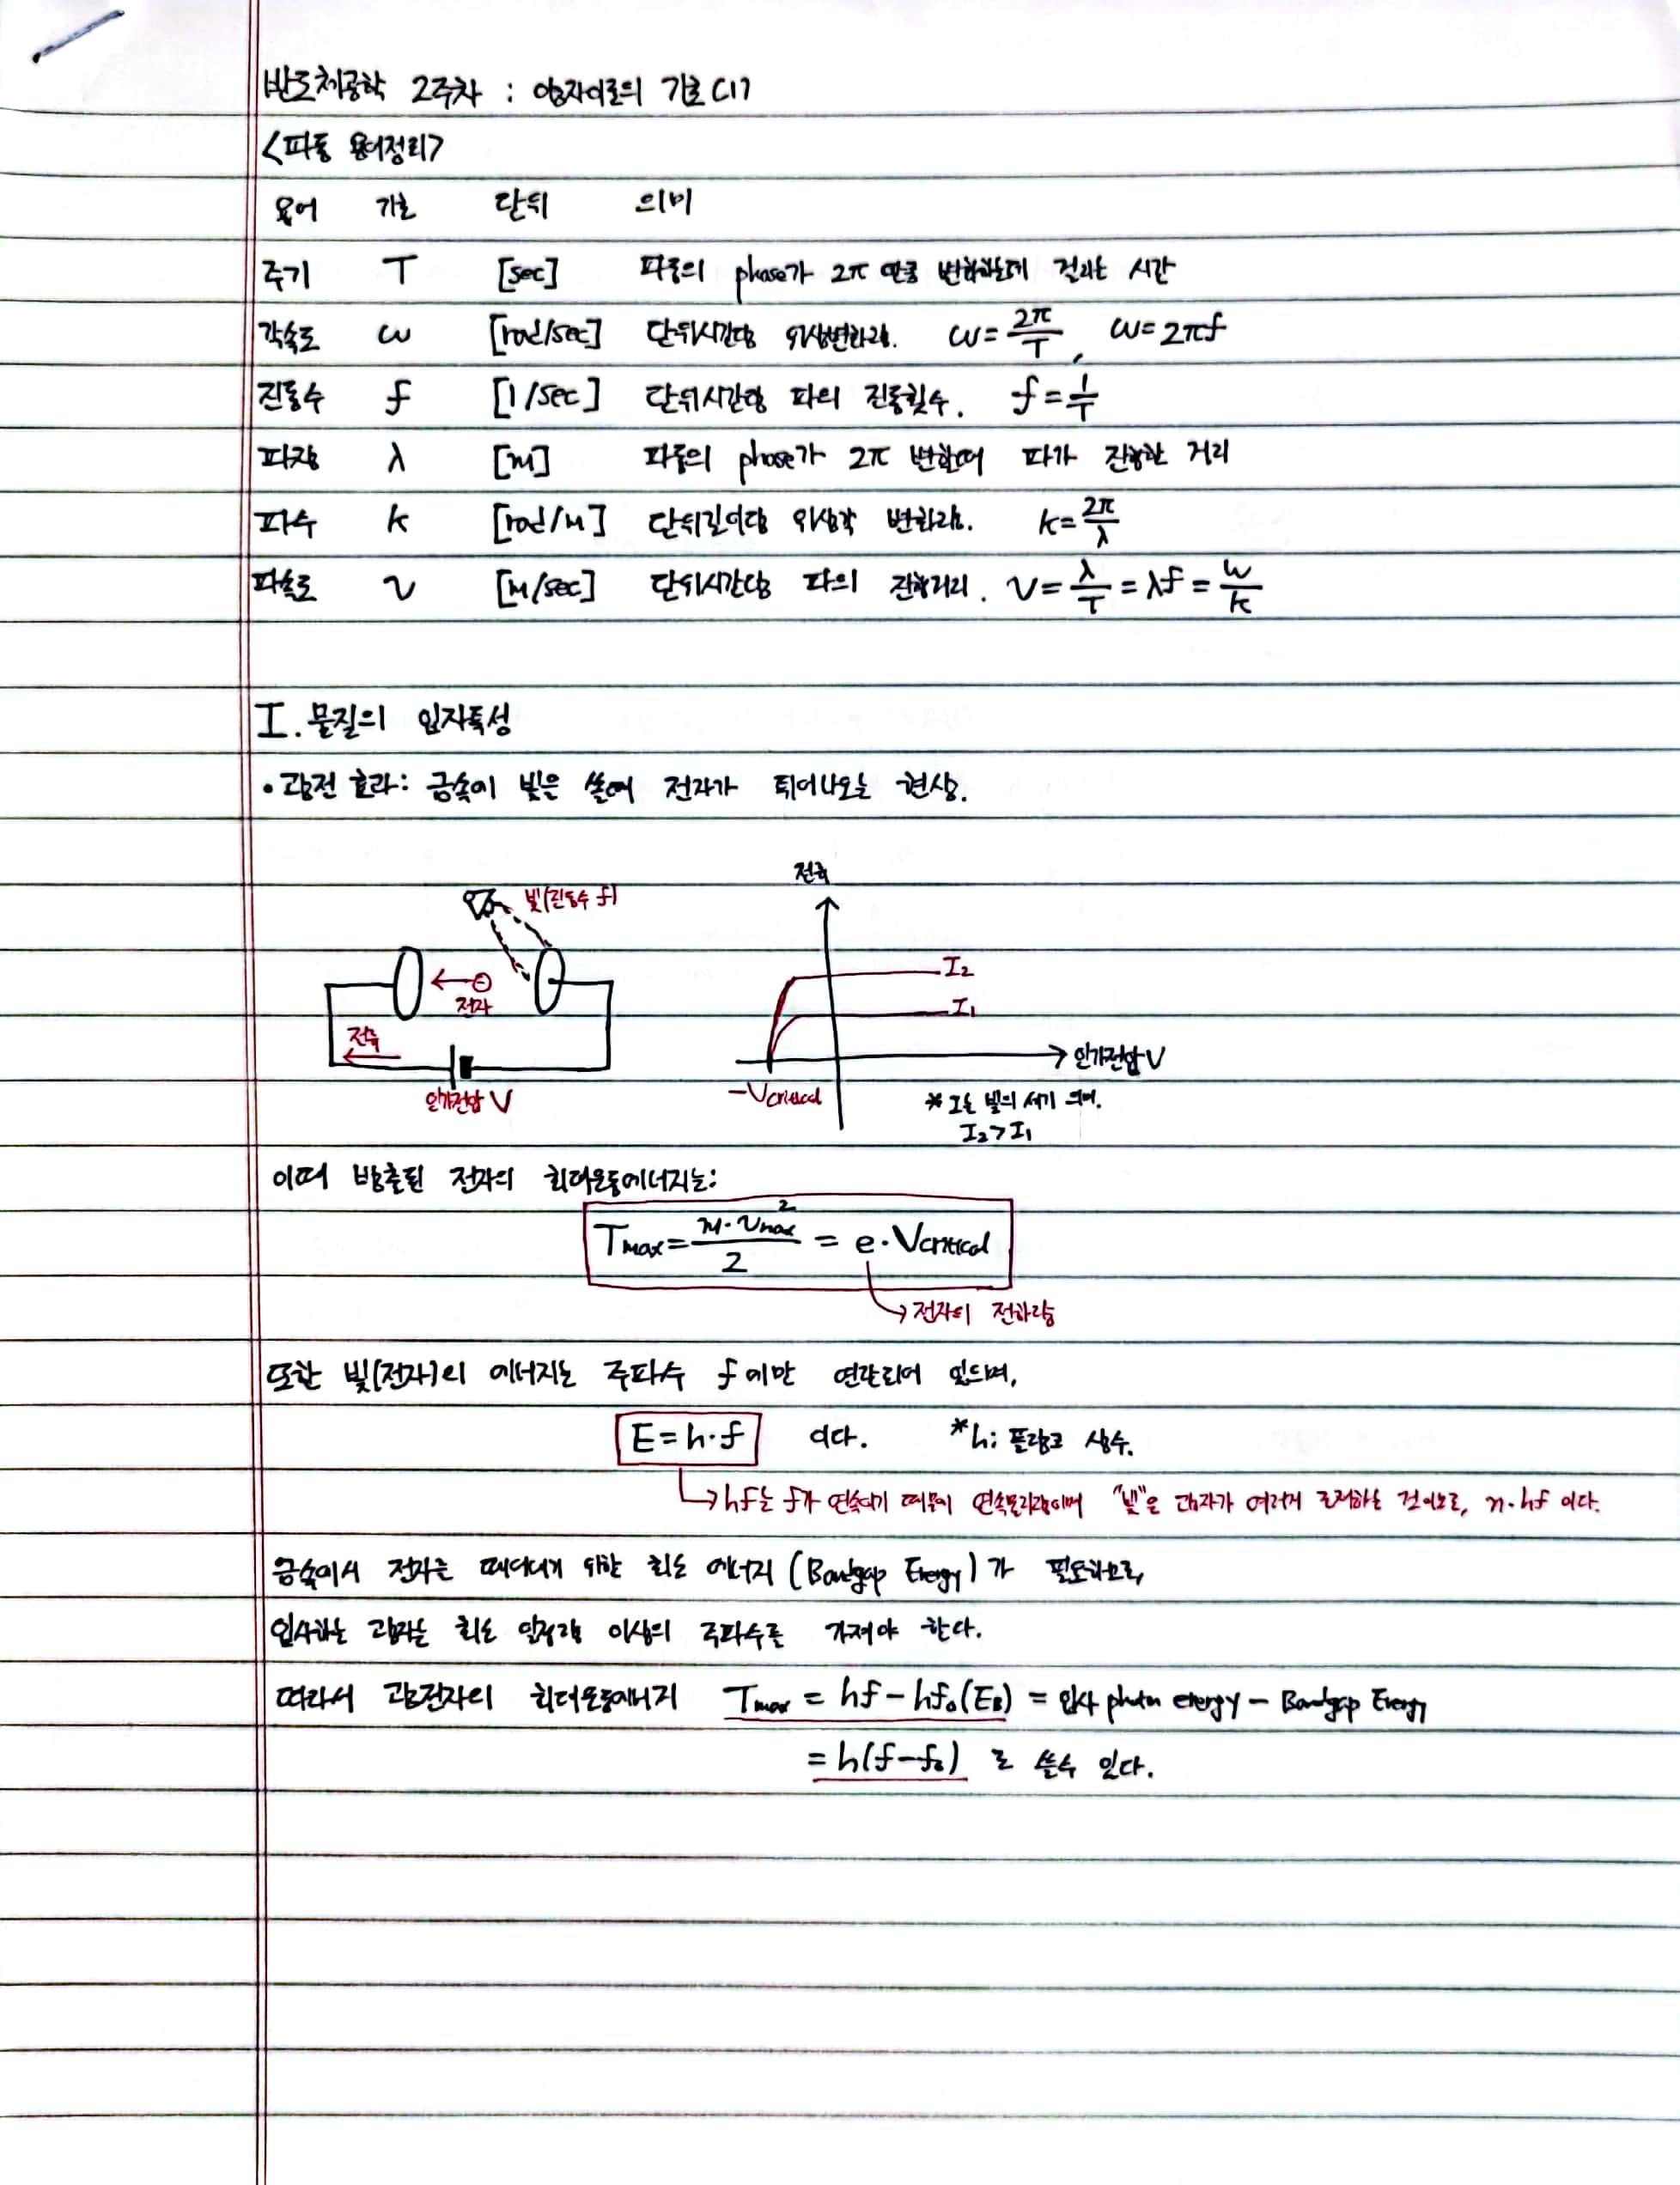 반도체공학 2주차 : 양자이론의 기초 (1)
<파동 용어정리>
용어 기호 단위 의미
주기 T [sec] 파동의 phase가 2π 만큼 변화하는데 걸리는 시간
각속도 ω [rad/sec] 단위시간당 위상변화량. ω=2π/T, ω=2πf
진동수 f [1/sec] 단위시간당 파의 진동횟수. f=1/T
파장 λ [m] 파동의 phase가 2π 변할때 파가 진행한 거리
파수 k [rad/m] 단위길이당 위상각 변화량. k=2π/λ
파속도 v [m/sec] 단위시간당 파의 진행거리. v=λ/T=λf=w/k
I. 물질의 입자특성
• 광전 효과: 금속에 빛은 쏠때 전자가 튀어나오는 현상.
빛(진동수 f)
전자
전류
인가전압 V
전류
I₂
I₁
인가전압 V
-Vcritical
* I는 빛의 세기 의미.
I₂>I₁
이때 방출된 전자의 최대운동에너지는:
Tmax = m·vmax²/2 = e·Vcritical
→전자의 전하량
또한 빛(전자)의 에너지는 주파수 f에만 연관되어 있으며,
E=h·f 이다. *h: 플랑크 상수.
→hf는 f가 연속이기 때문에 연속물리량이며 "빛"은 광자가 여러개 존재하는 것이므로, n·hf 이다.
금속에서 전자를 떼어내기 위한 최소 에너지 (Bandgap Energy)가 필요하므로,
입사하는 광자는 최소 일정량 이상의 주파수를 가져야 한다.
따라서 광전자의 최대운동에너지 Tmax = hf - hf₀(EB) = 입사 photon energy - Bandgap Energy
= h(f-f₀) 로 쓸수 있다.